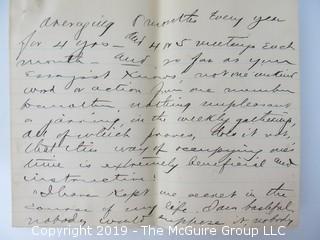 averaging 8 months Every year
for 4 yrs - and 4 or 5 meetings Each
month - and so far as your
Essayist Knows, not one unkind
word or action from one member
to another, nothing unpleasant
or jarring, in the weekly gathering,
all of which proves, does it not,
that this way of occupying one's
time is extremely beneficial and
instructive.
I have Kept no secret in the
course of my life. I am bashful,
nobody would nobody
Copyright 2019 - The McGuire Group, LLC